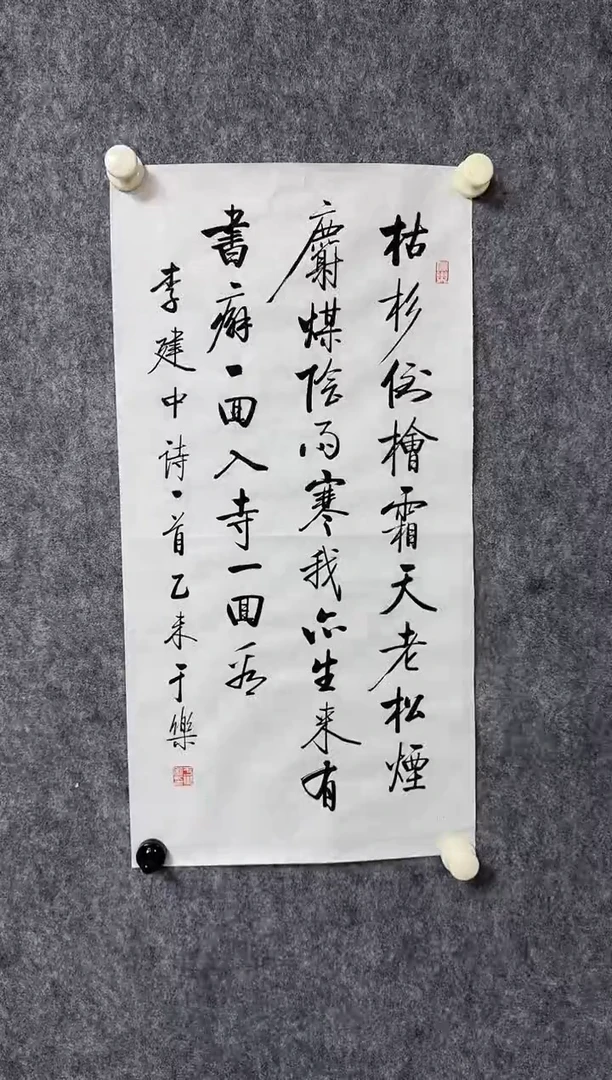 枯杉倒檜霜天老松煙
麝煤陰雨寒我亦生来有
書癖一回入寺一回看
李建中诗一首乙未于樂